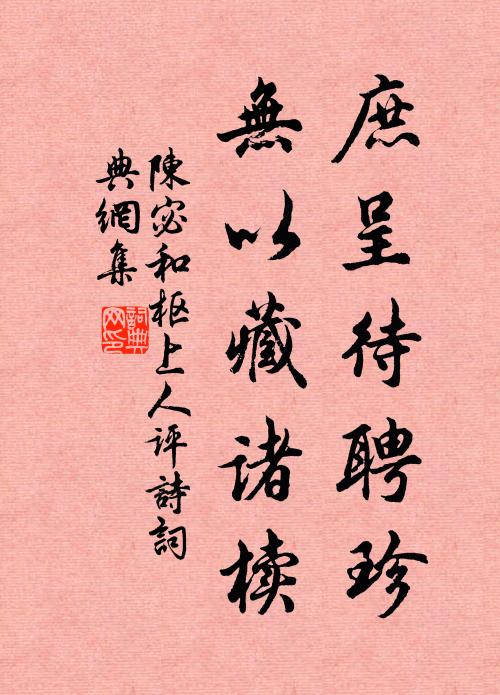 庶呈待聘珍
無以藏諸櫝
陳宓和枢上人評詩詞
典網集
詞典网印